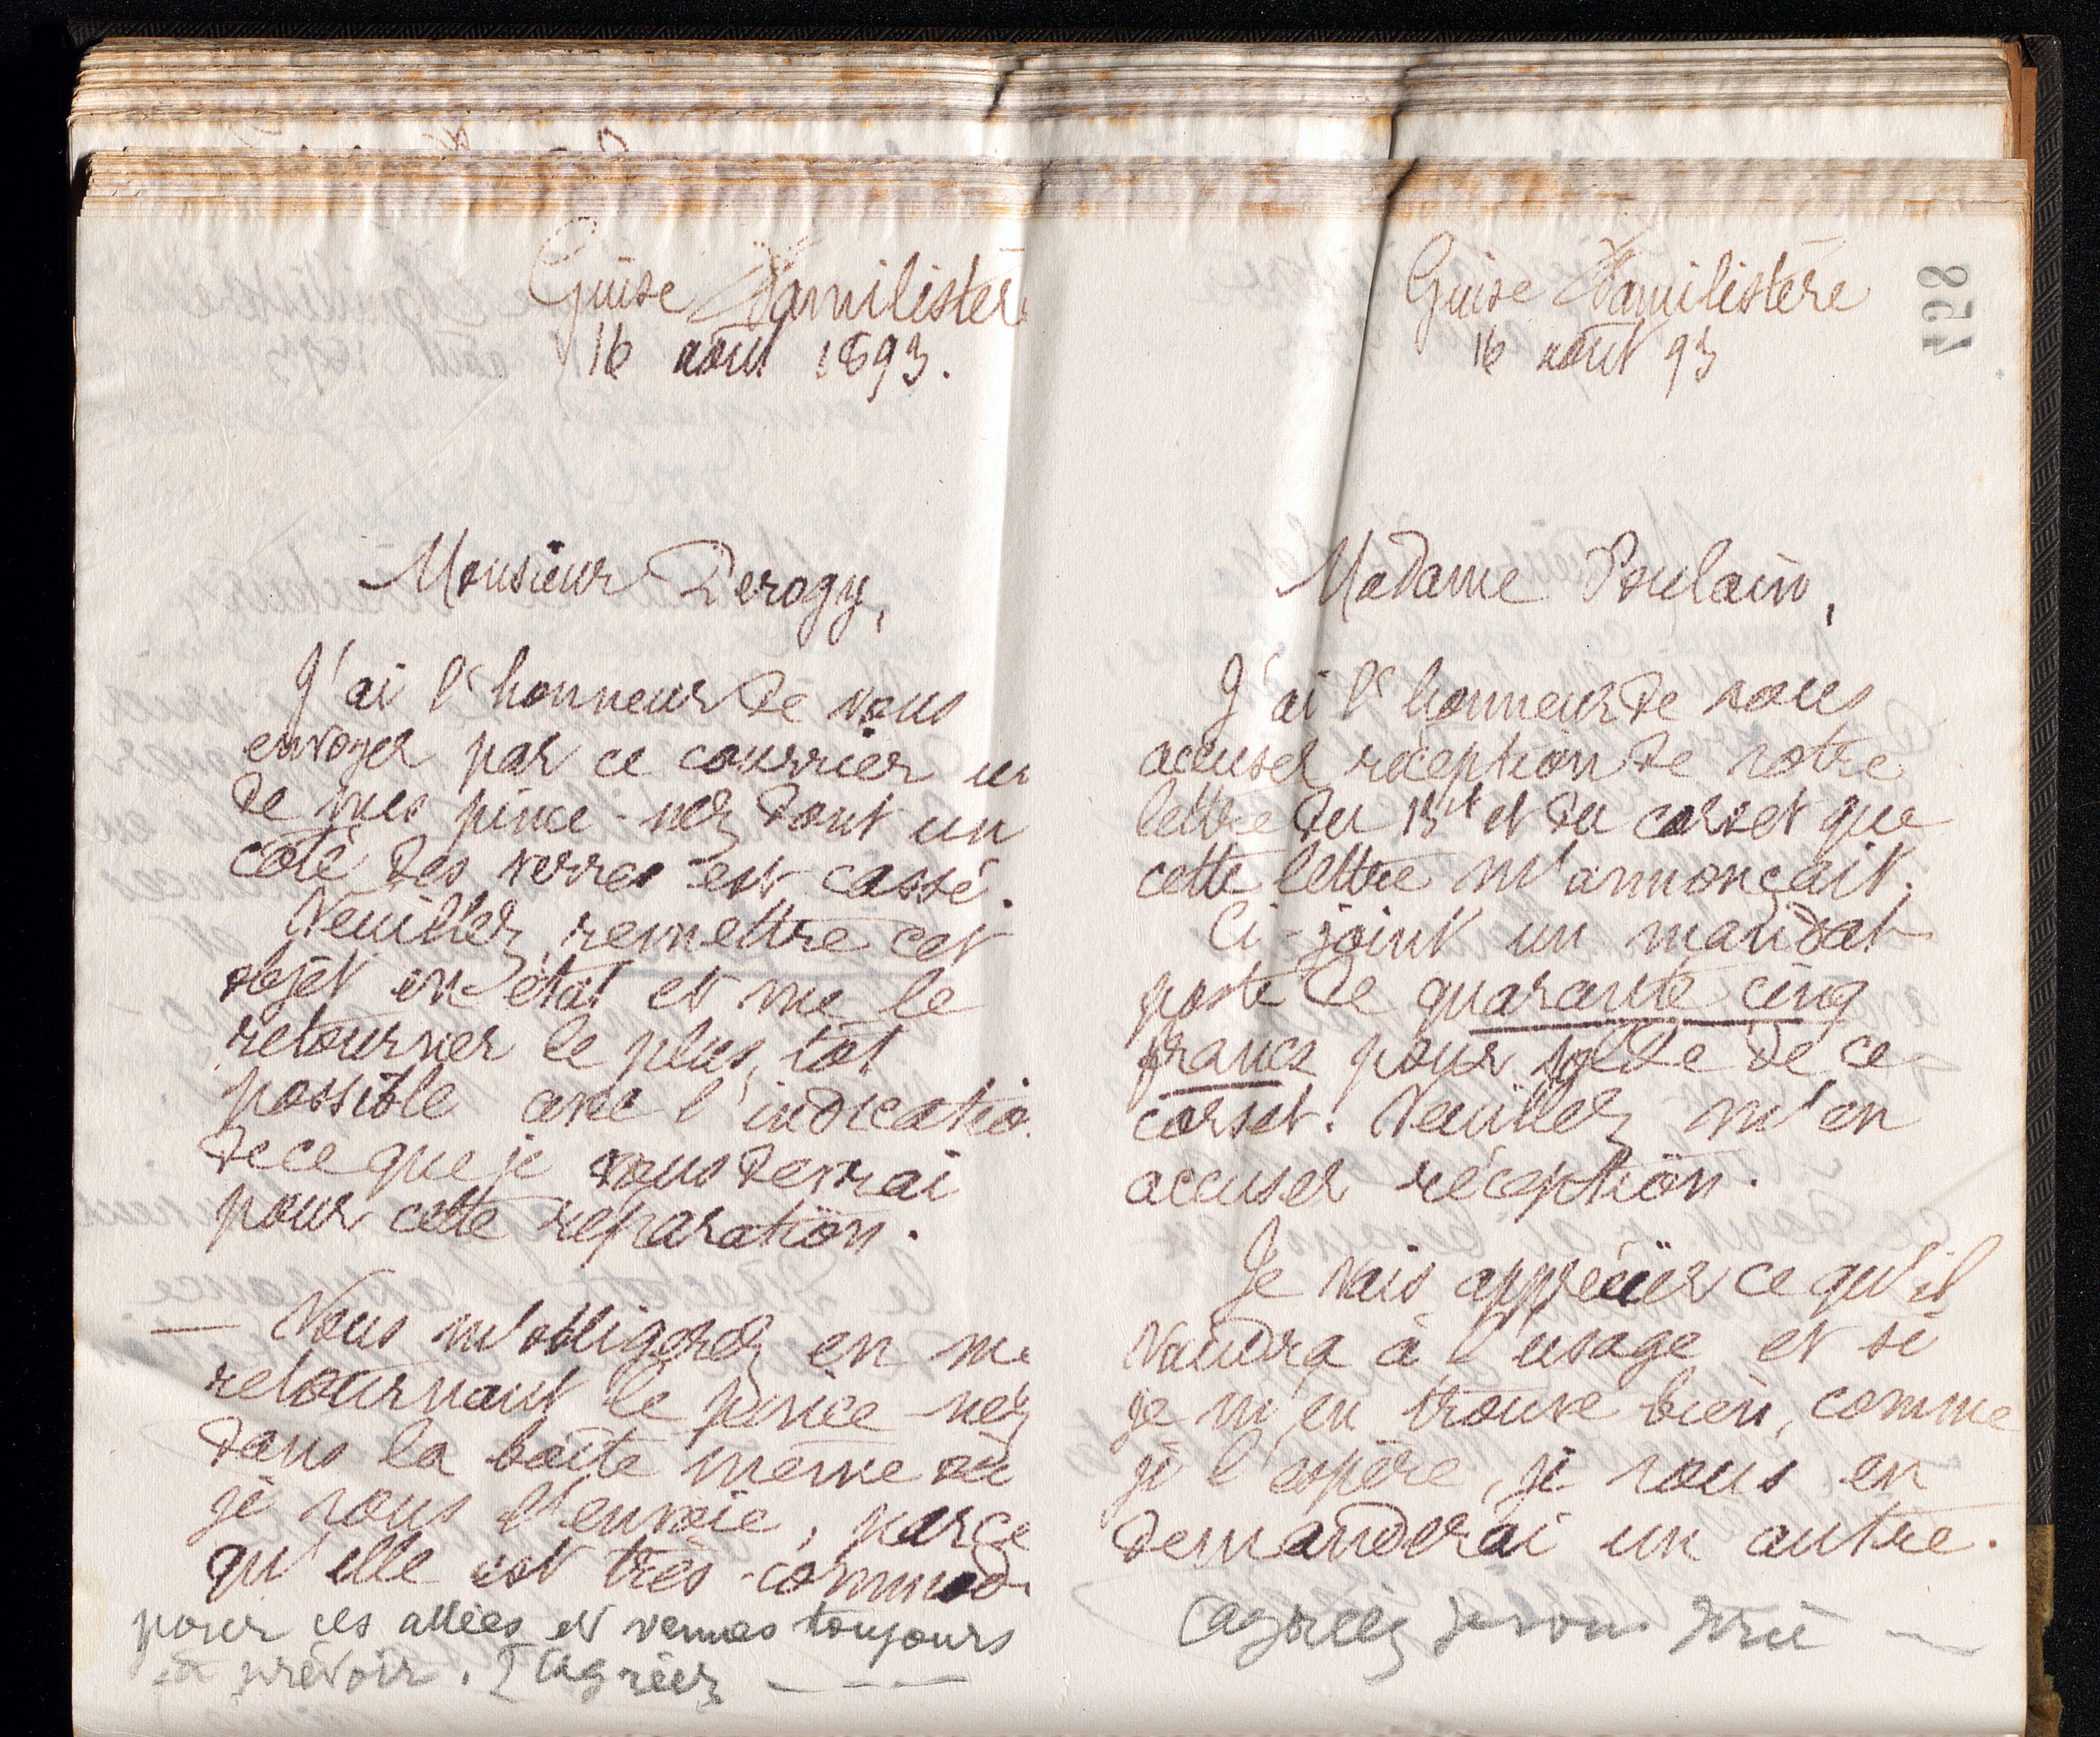 Guise Familistère
16 août 1893.
Monsieur Derogy,
J'ai l'honneur de vous
envoyer par ce courrier un
de mes pince-nez dont un
côté des verres est cassé.
Veuillez remettre cet
objet en état et me le
retourner le plus tôt
possible avec l'indicatio
de ce que je vous devrai
pour cette réparation.
— Vous m'obligerez en me
retournant le pince-nez
dans la boîte même où
je vous l'envoie, parce
qu'elle est très-commod
pour ces allées et venues toujours
à prévoir. Agréez - - -
Guise Familistère
16 août 93
428
Madame Poulain,
J'ai l'honneur de vous
accuser réception de votre
lettre du 15 et du corset que
cette lettre m'annonçait.
Ci-joint un mandat
poste de quarante cinq
francs pour solde de ce
corset. Veuillez m'en
accuser réception.
Je vais apprécier ce qu'il
vaudra à l'usage et si
je m'en trouve bien, comme
je l'espère, je vous en
demanderai un autre.
Agréez je vous prie —